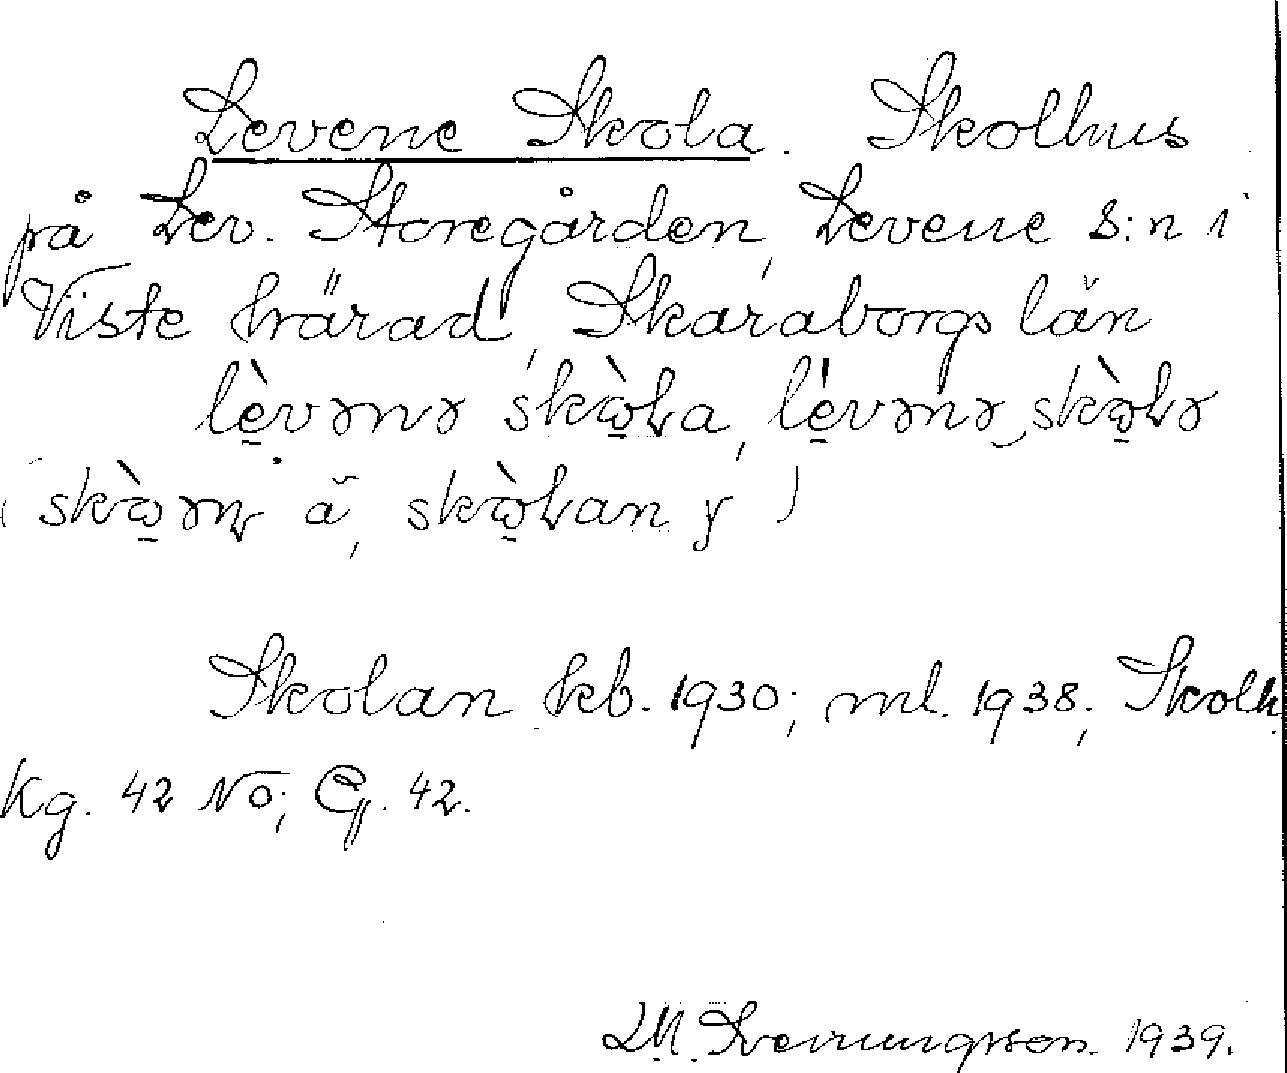 Levene Skola. Skolhus
på Lev. Storegården, Levene s:n i
Viste härad, Skaraborgs län
lèvənə skꞷ̀ɫa, lévənə skꞷ̀ɫə
(skꞷ̀ən ä, skꞷ̀ɫan y)
Skolan kb. 1930; ml. 1938; Skolh
Kg. 42 NO; Eg. 42.
1939.